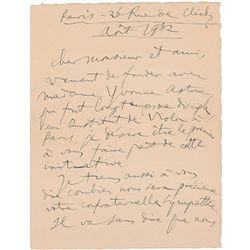 Paris - 26 Rue de Clichy
Août 1932
Cher monsieur et ami,
venant de fonder avec
madame Yvonne Astruc
qui fut longtemps ma disciple
un Institut de Violon à
Paris, je désire être le premier
à vous faire part de cette
initiative.
Je tiens aussi à vous
dire combien nous sera précieuse
votre confraternelle sympathie
Il va sans dire que nous